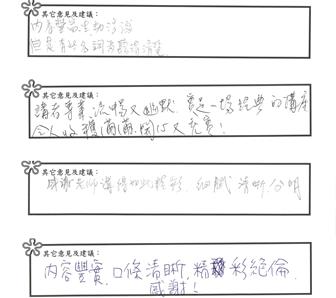 其它意見及建議：
內容豐富生動活潑
但是有些名詞有聽沒懂
其它意見及建議：
講者專業流暢又幽默，實是一場經典的講座
令人收獲滿滿，開心又充實！
其它意見及建議：
感謝老師講得如此精彩，細膩 清晰分明
其它意見及建議：
內容豐實，口條清晰，精彩絕倫
感謝！